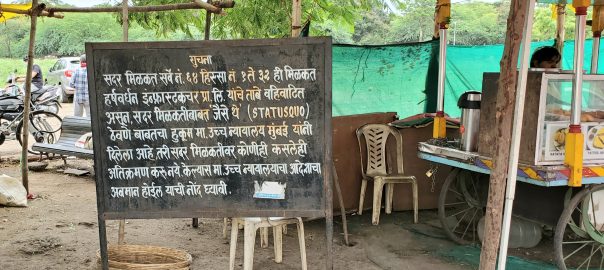 सुचना
सदर मिळकत सर्वे नं. ६४ हिस्सा नं. १ ते ३२ ही मिळकत
हर्षवर्धन इन्फ्रास्टकचर प्रा.लि. यांचे ताबे वहिवाटित
असून सदर मिळकतीबाबत 'जैसे थे' (STATUSQUO)
ठेवणे बाबतचा हुकूम मा. उच्च न्यायालय मुंबई यांनी
दिलेला आहे. तरी सदर मिळकतीवर कोणीही कसलेही
अतिक्रमण करू नये केल्यास मा. उच्च न्यायालयाचा आदेशाचा
अवमान होईल याची नोंद घ्यावी.